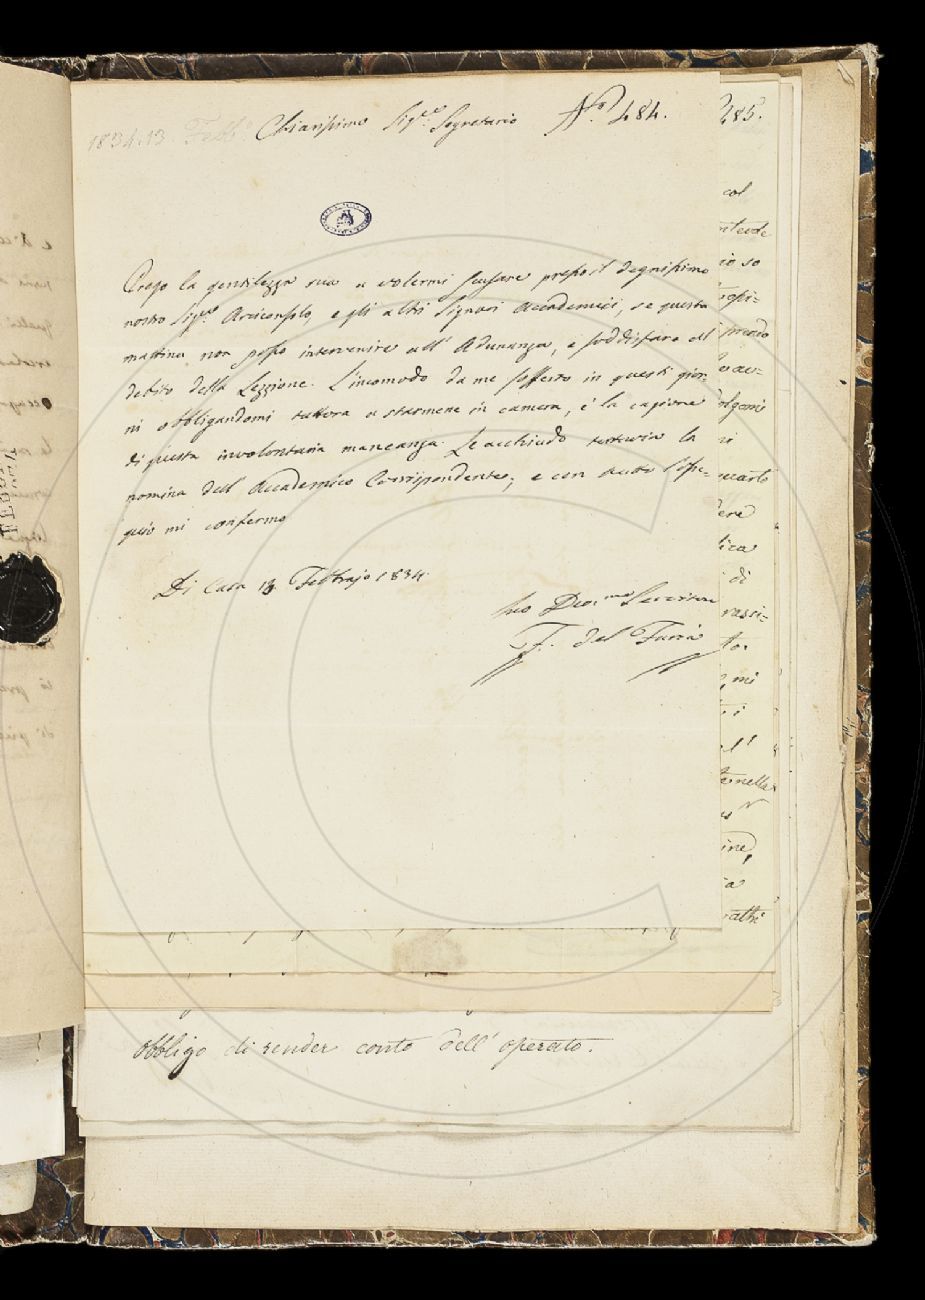 1834. 13. Febb.
Chiarissimo Sig.re Segretario
N.o 484.
Prego la gentilezza sua a volermi scusare presso il degnissimo
nostro Sig.re Arciconsolo, e gli altri Signori Accademici, se questa
mattina non posso intervenire all' Adunanza, e soddisfare al
debito della Lezzione. L'incomodo da me sofferto in questi gior-
ni obbligandomi tuttora a starmene in camera, è la cagione
di questa involontaria mancanza. Le acchiudo tuttavia la
nomina dell' Accademico Corrispondente; e con tutto l'osse-
quio mi confermo
Di Casa 13 Febbrajo 1834.
Suo Dev.mo Servitore
F. del Furia
485.
col
so
presi-
quarto
lica
di
rassi-
to.
mi
i
tornella
ine,
obbligo di render conto dell' operato.